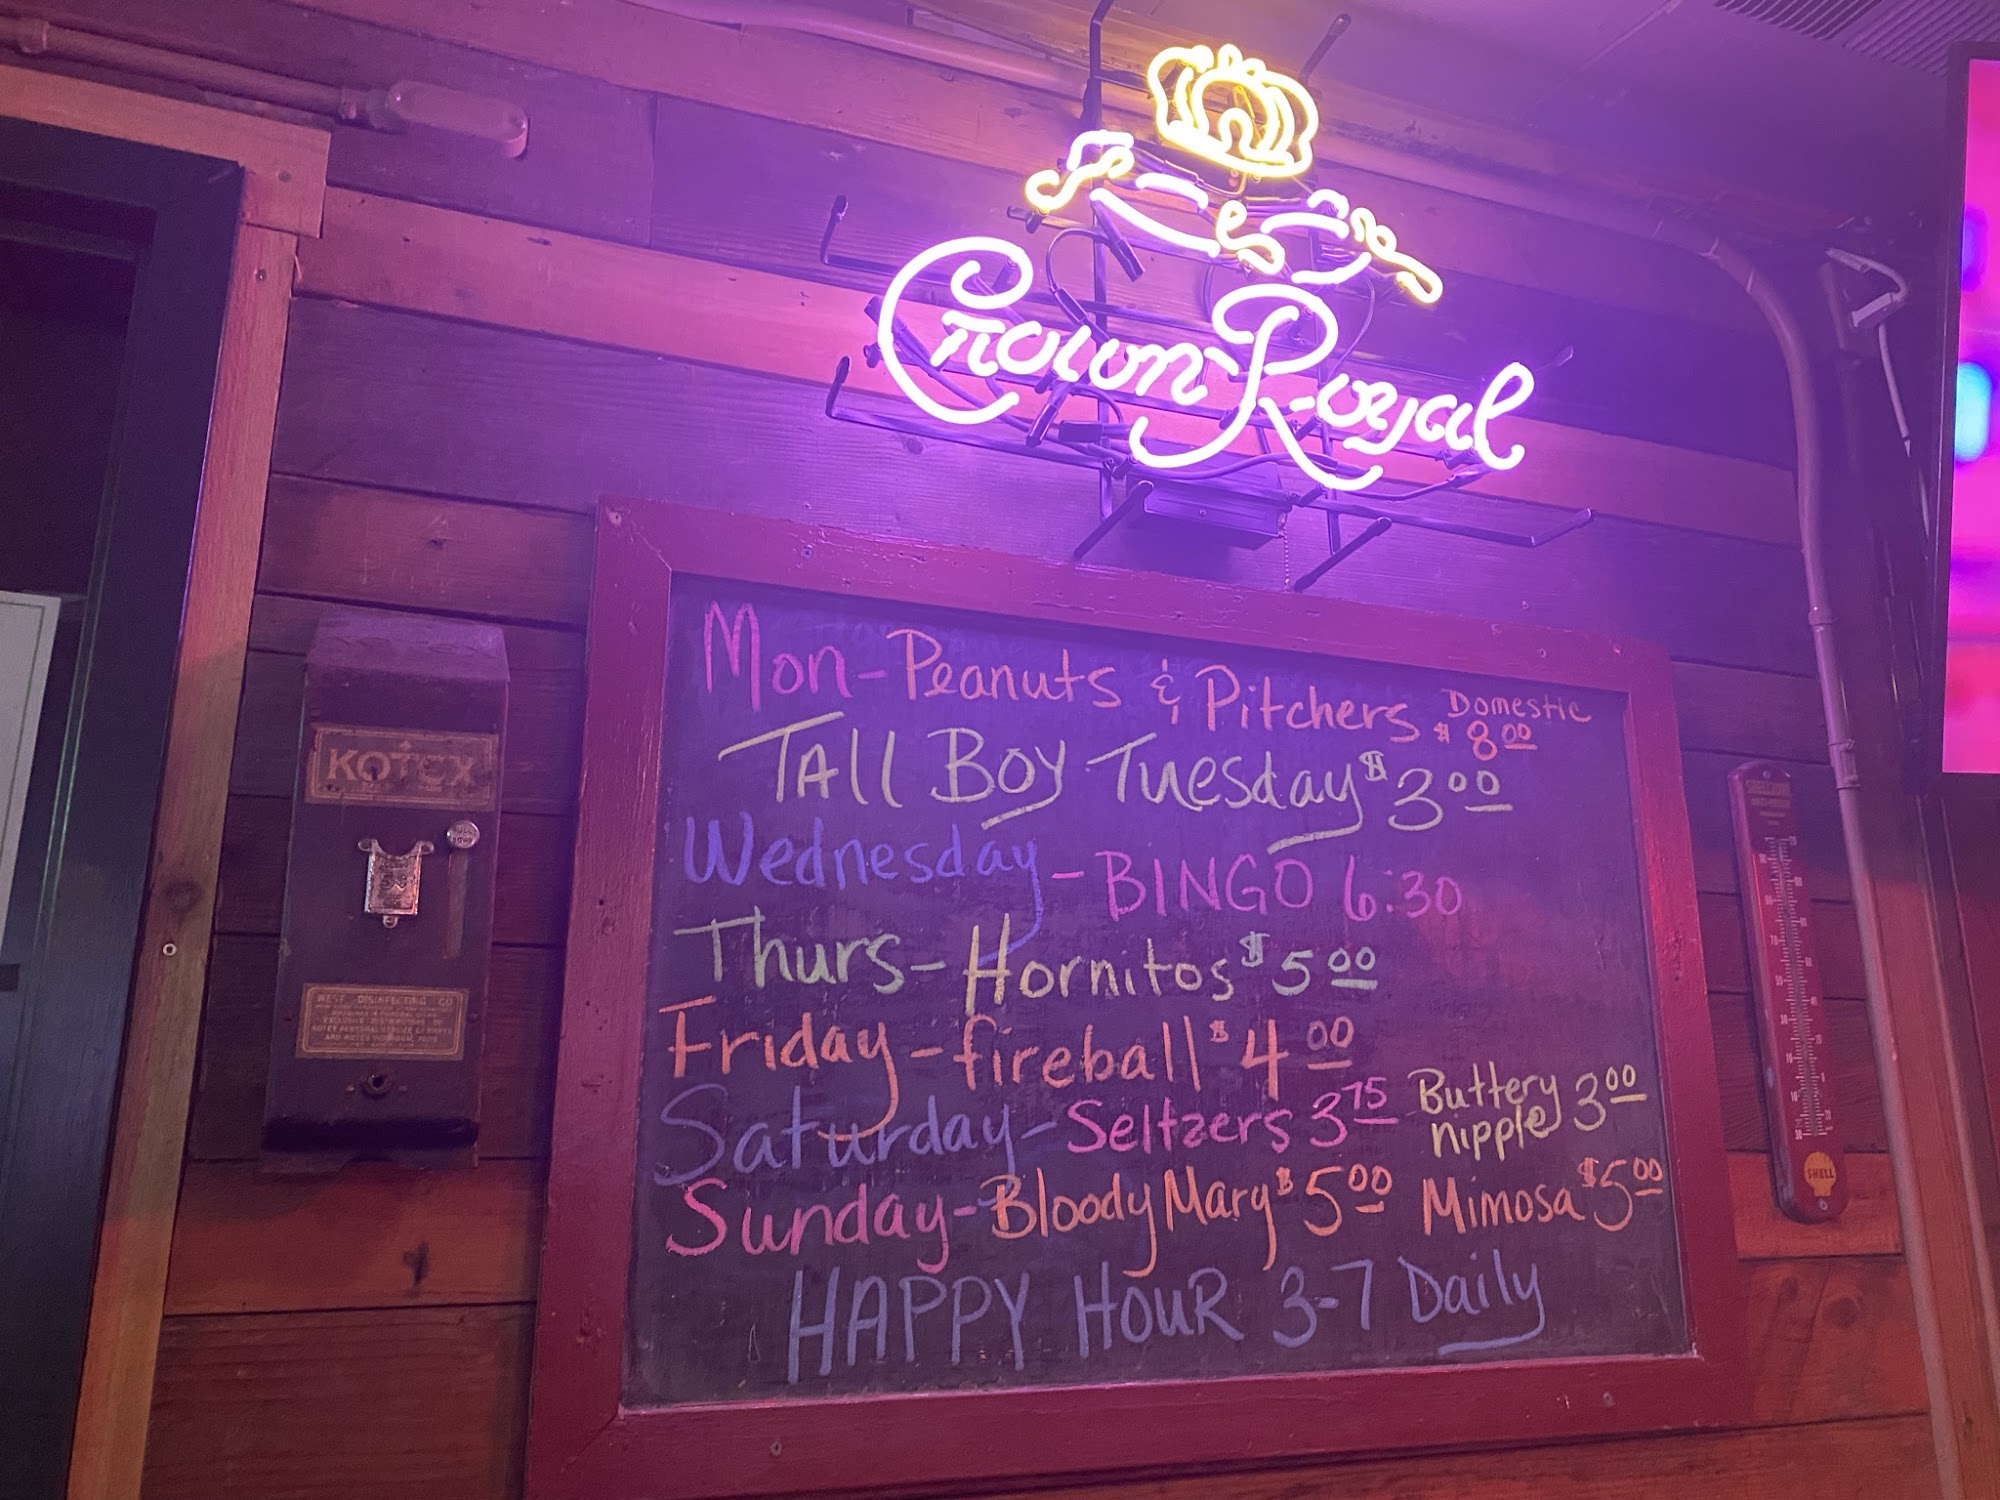 Crown Royal
Mon-Peanuts & Pitchers Domestic $8.00
TAll BOY Tuesday $3.00
Wednesday - BINGO 6:30
Thurs - Hornitos $5.00
Friday - fireball $4.00
Saturday - Seltzers 3.75 Buttery nipple 3.00
Sunday - Bloody Mary $5.00 Mimosa $5.00
HAPPY HOUR 3-7 Daily
KOTEX
WEST DISINFECTING CO
EXCLUSIVE DISTRIBUTORS OF
SHELL